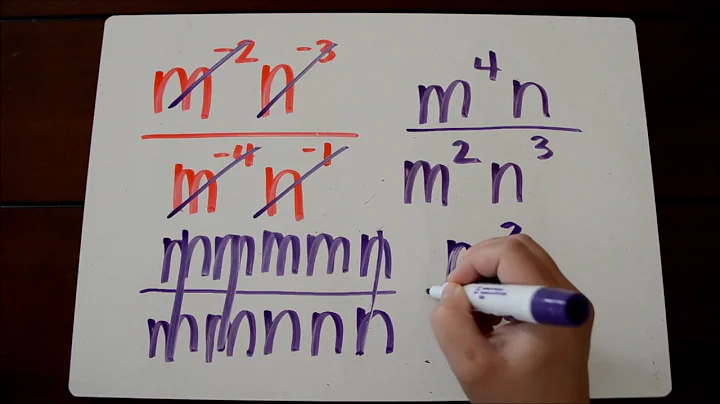 m⁻²n⁻³
m⁻⁴n⁻¹
m⁴n
m²n³
mmmmn
mmnnn